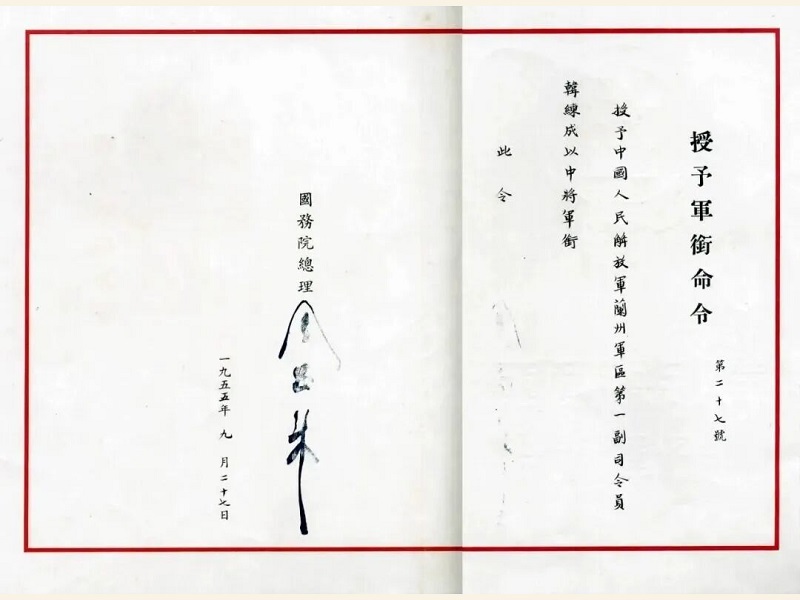 授予軍銜命令
第二十七號
授予中國人民解放軍蘭州軍區第一副司令員
韓練成以中將軍銜
此令
國務院總理
一九五五年九月二十七日